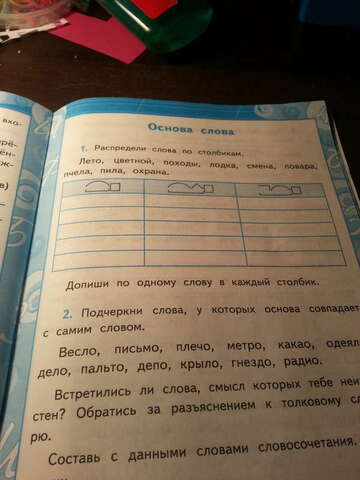 вхо-
рё-
ён-
ж-
в)
Основа слова
1. Распредели слова по столбикам.
Лето, цветной, походы, лодка, смена, повара,
пчела, пила, охрана.
Допиши по одному слову в каждый столбик.
2. Подчеркни слова, у которых основа совпадает
с самим словом.
Весло, письмо, плечо, метро, какао, одеял
дело, пальто, депо, крыло, гнездо, радио.
Встретились ли слова, смысл которых тебе неи
стен? Обратись за разъяснением к толковому сл
рю.
Составь с данными словами словосочетания.